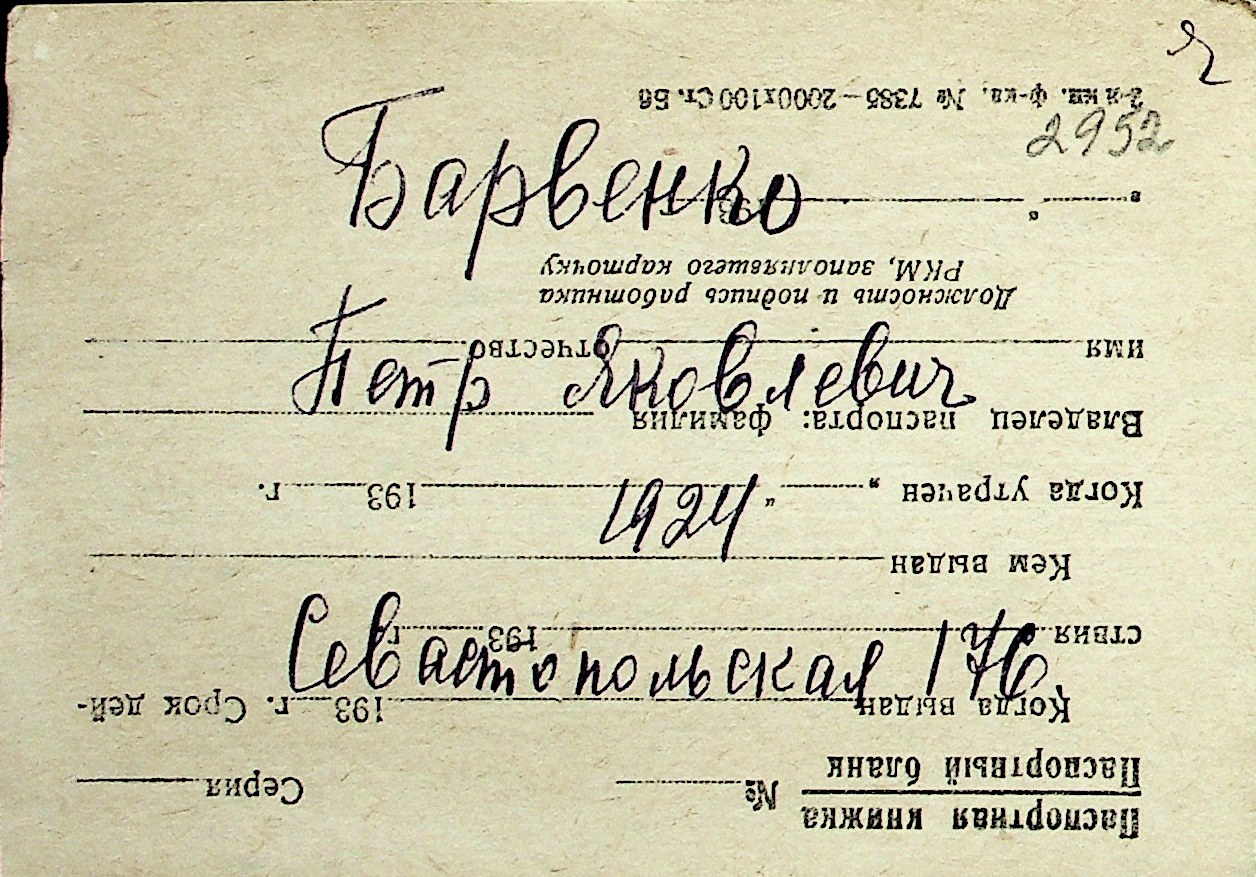 2952
Барвенко
Петр Яковлевич
1924
Севастопольская 176
Паспортная книжка
Паспортный бланк
№ Серия
Когда выдан 193 г. Срок дей-
ствия 193 г.
Кем выдан
Когда утрачен „ “ 193 г.
Владелец паспорта: фамилия
имя отчество
Должность и подпись работника
РКМ, заполнявшего карточку
„ “ 193
2-я кн. ф-ка. № 7385—2000х100 Ст. Б6